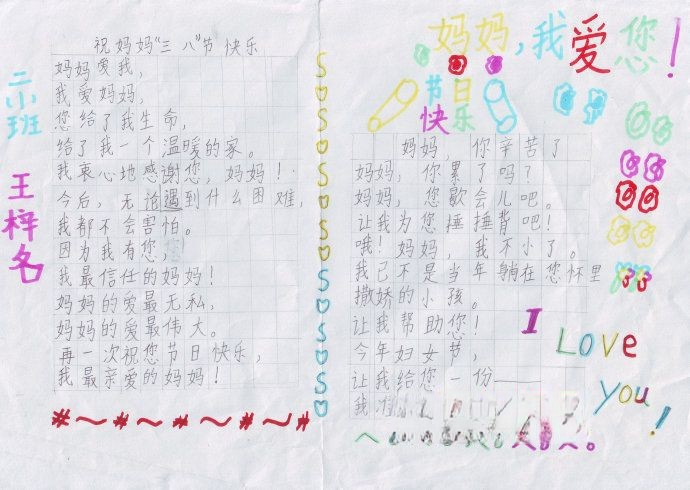 二小班
王梓名
祝妈妈“三八”节快乐
妈妈爱我，
我爱妈妈，
您给了我生命，
给了我一个温暖的家。
我衷心地感谢您，妈妈！
今后，无论遇到什么困难，
我都不会害怕。
因为我有您，
我最信任的妈妈！
妈妈的爱最无私，
妈妈的爱最伟大。
再一次祝您节日快乐，
我最亲爱的妈妈！
妈妈，我爱您！
节日
快乐
妈妈 你辛苦了
妈妈，你累了吗？
妈妈，您歇会儿吧。
让我为您捶捶背吧！
哦！妈妈，我不小了。
我已不是当年躺在您怀里
撒娇的小孩。
让我帮助您！
今年妇女节，
让我给您一份——
我
I
Love
You!